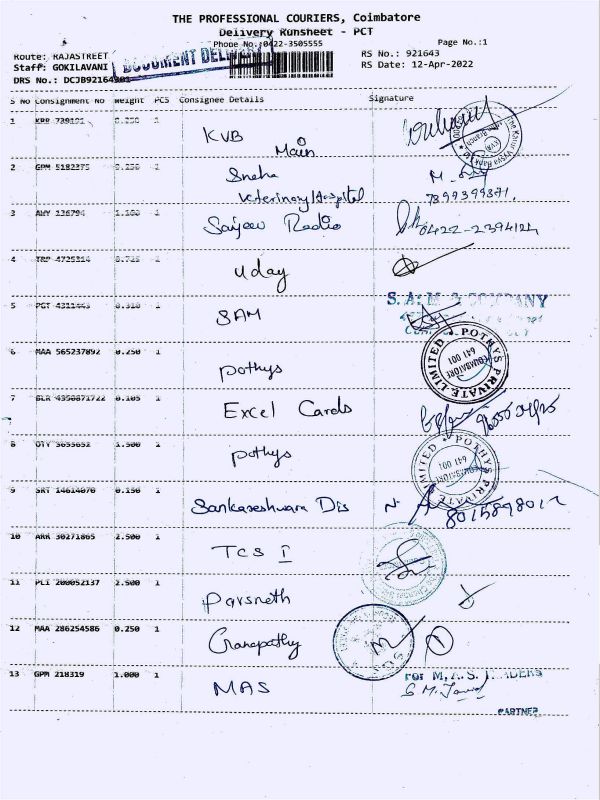 THE PROFESSIONAL COURIERS, Coimbatore
Delivery Runsheet - PCT
Phone No.:0422-3505555 Page No.:1
Route: RAJASTREET RS No.: 921643
Staff: GOKILAVANI DOCUMENT DELIVERY RS Date: 12-Apr-2022
DRS No.: DCJB92164
S No Consignment No Weight PCS Consignee Details Signature
1 KRR 739191 0.250 1
KVB Main
2 GPM 5182375 0.250 1
Sneha
Veterinary Hospital 7899399371.
3 AWY 136794 1.100 1
Sanjeev Radio 0422-2394124
4 TRP 4725314 1
Uday
5 PGT 0.310 1
S.A.M & COMPANY
SAM
6 MAA 565237892 0.250 1
pothys
POTHYS PRIVATE LIMITED COIMBATORE 641 001
7 BLR 4350871722 0.105 1
Excel Cards
8 1.500 1
pothys
POTHYS PRIVATE LIMITED COIMBATORE 641 001
9 SRT 14614070 0.150 1
Sankareshwara Dis
10 ARR 30271865 2.500 1
TCS I
11 PLI 200052137 2.500 1
Parsneth
12 MAA 286254586 0.250 1
Ganapathy 1
13 GPM 218319 1.000 1
For M.A.S. TRADERS
MAS
PARTNER